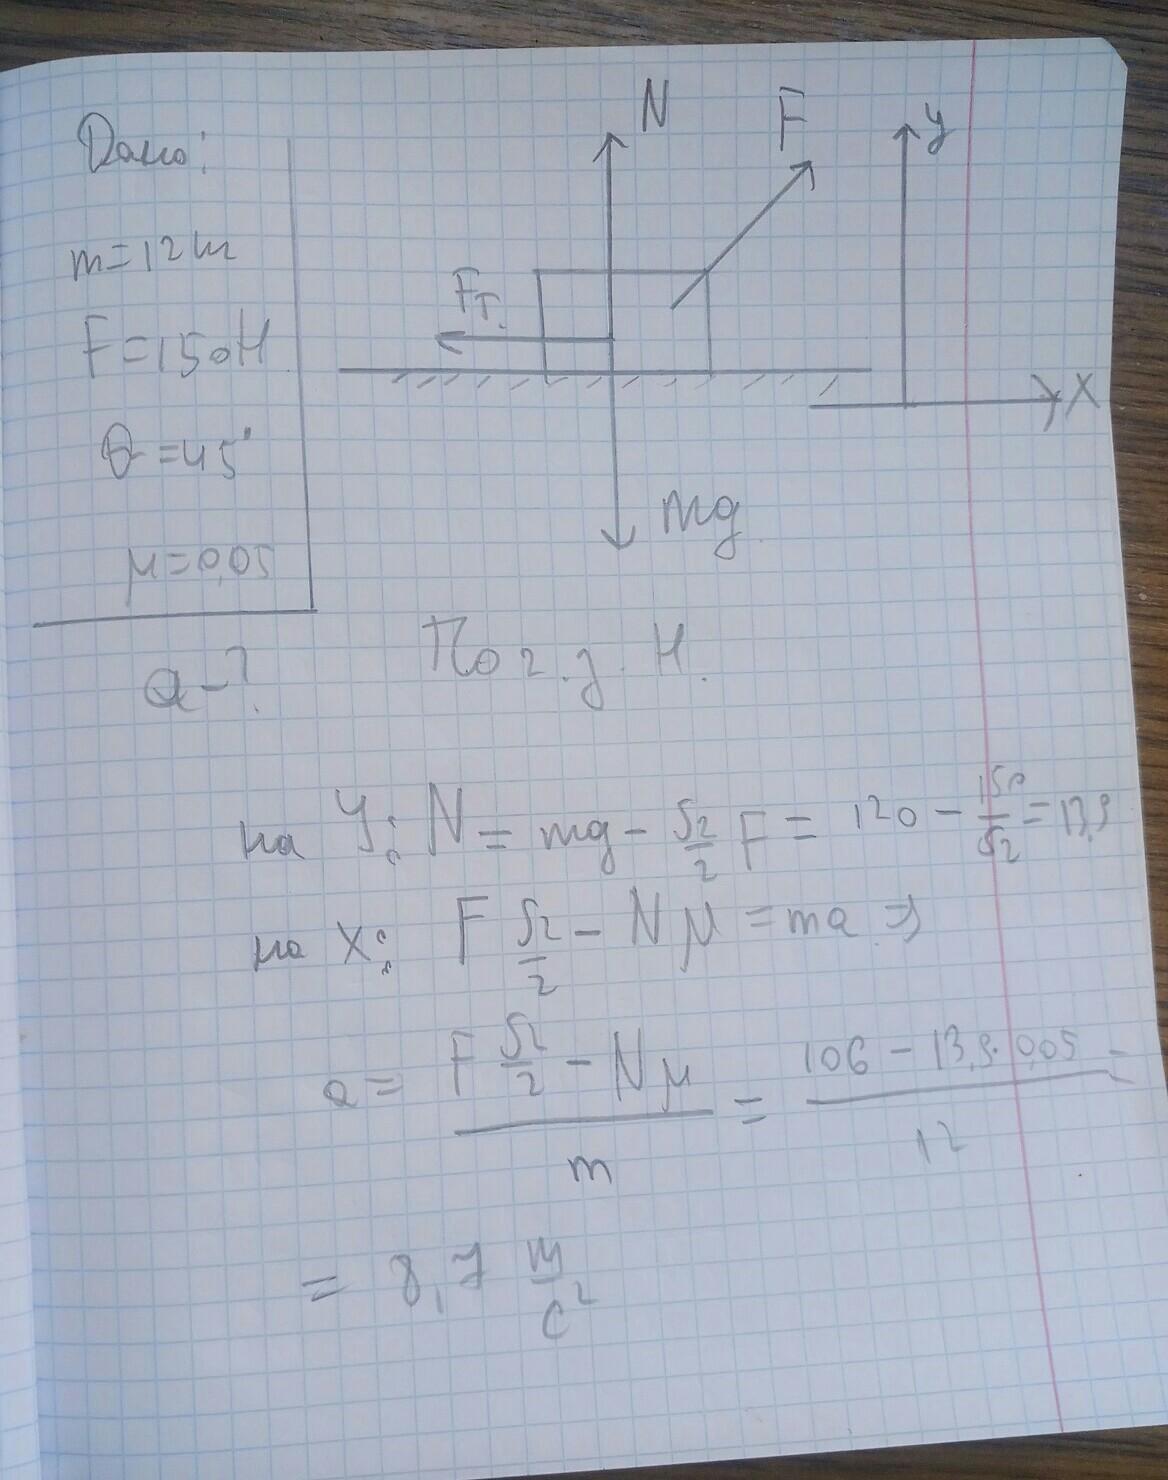 Дано:
m=12кг
F=150Н
θ=45°
μ=0,05
a-?
N
F
y
Fт.
x
mg
По 2 з. Н.
на y: N = mg - √2/2 F = 120 - 150/√2 = 13,9
на x: F √2/2 - Nμ = ma ⇒
a = (F √2/2 - Nμ)/m = (106 - 13,9·0,05)/12 =
= 8,7 м/с²